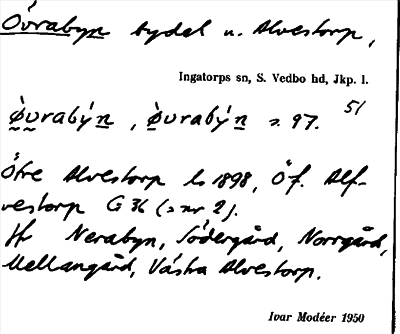 Övrabyn bydel u. Alvestorp,
Ingatorps sn, S. Vedbo hd, Jkp. l.
òvrabýn, òvrabýn s. 97. 51
Öfre Alvestorp ls 1898, Öf. Alf-
vestorp G 36 (s nr 2).
Jfr Nerabyn, Södergård, Norrgård,
Mellangård, Västra Alvestorp.
Ivar Modéer 1950